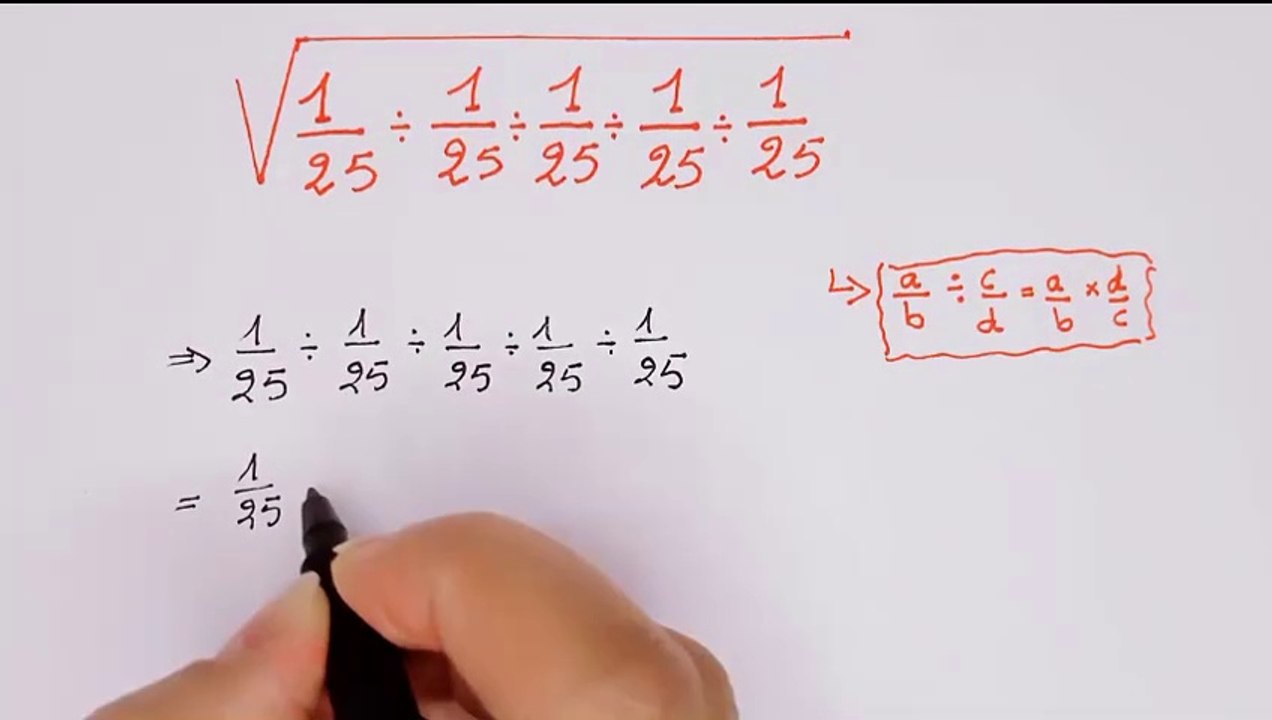 √(1/25 ÷ 1/25 ÷ 1/25 ÷ 1/25 ÷ 1/25)
↳ a/b ÷ c/d = a/b × d/c
⇒ 1/25 ÷ 1/25 ÷ 1/25 ÷ 1/25 ÷ 1/25
= 1/25